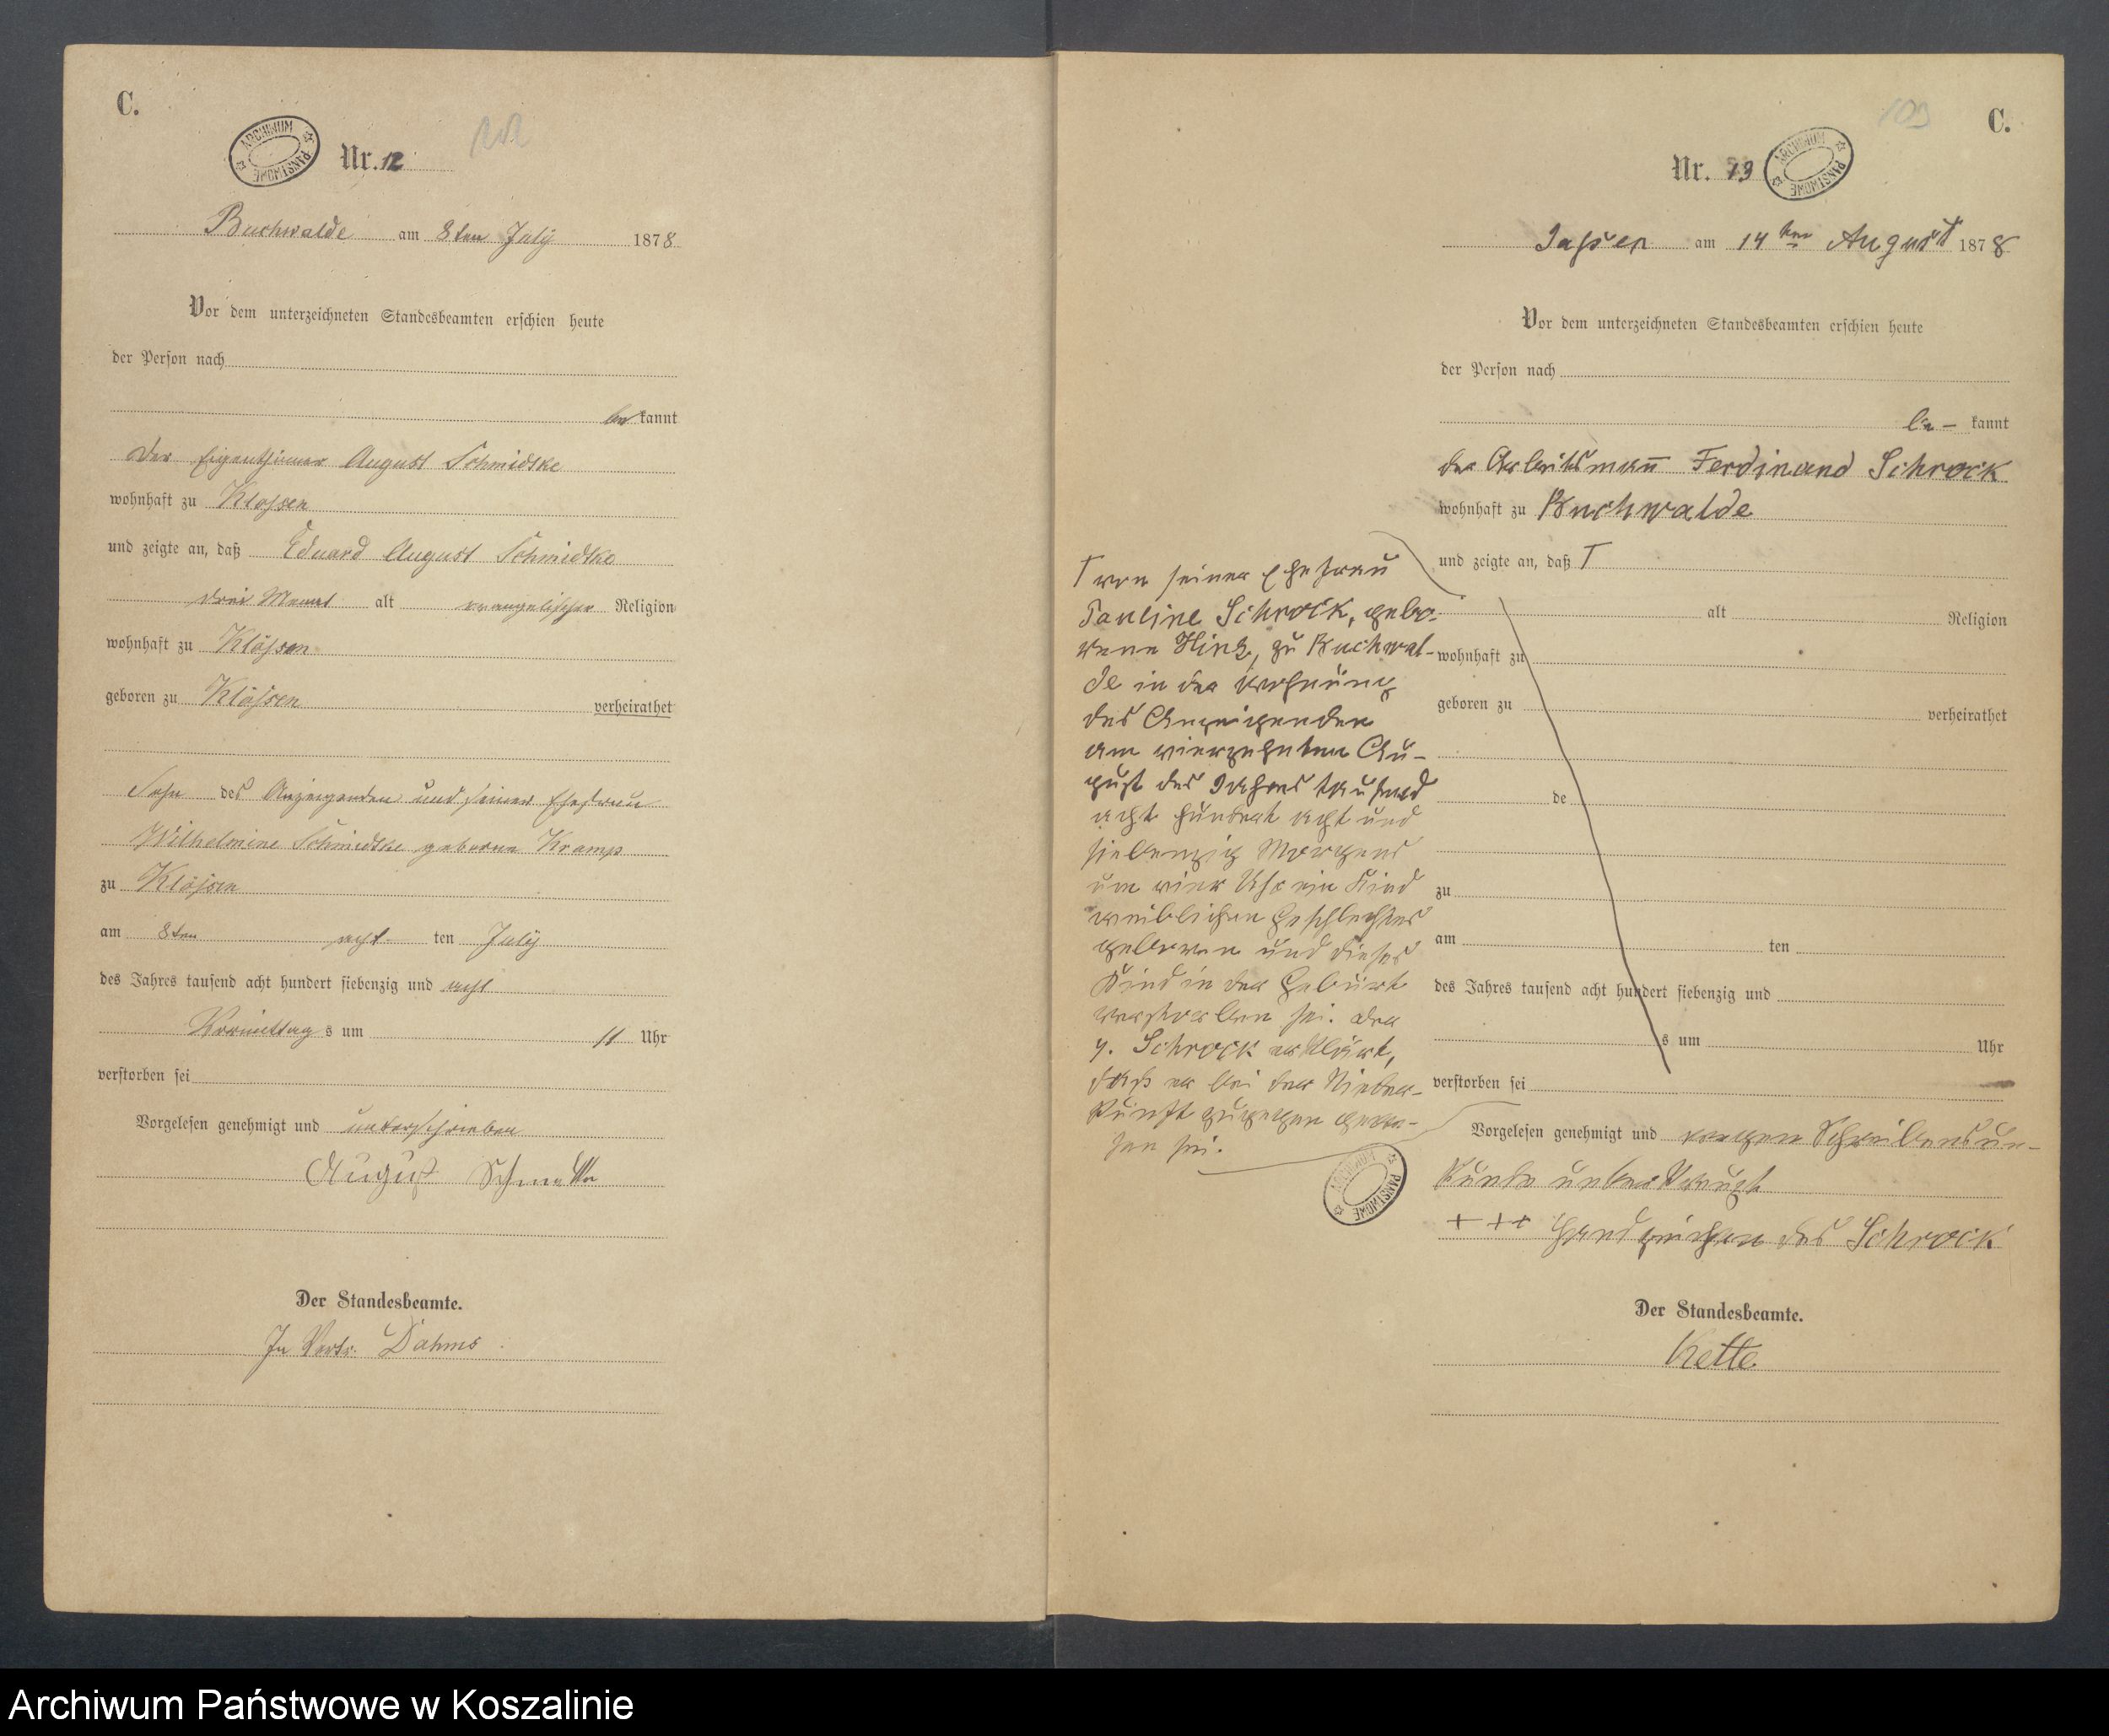 C.
ARCHIWUM PAŃSTWOWE
Nr. 12
Buchwalde am 8ten July 1878
Vor dem unterzeichneten Standesbeamten erschien heute
der Person nach
be kannt
der Eigenthümer August Schmidtke
wohnhaft zu Klossen
und zeigte an, daß Eduard August Schmidtke
drei Monat alt evangelischer Religion
wohnhaft zu Klössen
geboren zu Klössen verheirathet
Sohn des Anzeigenden und seiner Ehefrau
Wilhelmine Schmidtke geborene Kramp
zu Klössen
am 8ten acht ten July
des Jahres tausend acht hundert siebenzig und acht
Vormittag s um 11 Uhr
verstorben sei
Vorgelesen genehmigt und unterschrieben
August Schmidtke
Der Standesbeamte.
In Vertr. Dahms.
109
C.
Nr. 13
ARCHIWUM PAŃSTWOWE
Jassen am 14ten August 1878
Vor dem unterzeichneten Standesbeamten erschien heute
der Person nach
be- kannt
der Arbeitsmann Ferdinand Schrock
wohnhaft zu Buchwalde
und zeigte an, daß T
alt Religion
wohnhaft zu
geboren zu verheirathet
de
zu
am ten
des Jahres tausend acht hundert siebenzig und
s um Uhr
verstorben sei
T von seiner Ehefrau
Pauline Schrock, gebo-
rene Hinz, zu Buchwal-
de in der Wohnung
des Anzeigenden
am vierzehnten Au-
gust des Jahres tausend
acht hundert acht und
siebenzig Morgens
um vier Uhr ein Kind
weiblichen Geschlechtes
geboren und dieses
Kind in der Geburt
verstorben sei. Der
p. Schrock erklärt,
daß er bei der Nieder-
kunft zugegen gewe-
sen sei.
ARCHIWUM PAŃSTWOWE
Vorgelesen genehmigt und wegen Schreibensun-
kunde unterkreuzt
+ + + Handzeichen des Schrock
Der Standesbeamte.
Kette
Archiwum Państwowe w Koszalinie